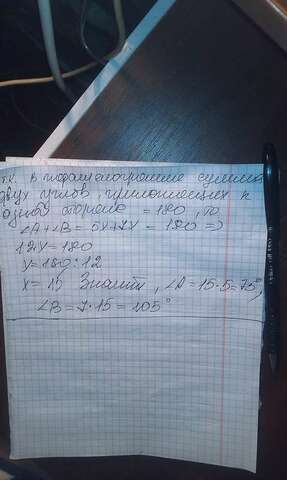 т.к. в параллелограмме сумма
двух углов, прилежащих к
одной стороне = 180, то
∠A+∠B = 5x+7x = 180 =>
12x=180
x=180:12
x=15 Значит, ∠A=15·5=75°,
∠B=7·15=105°